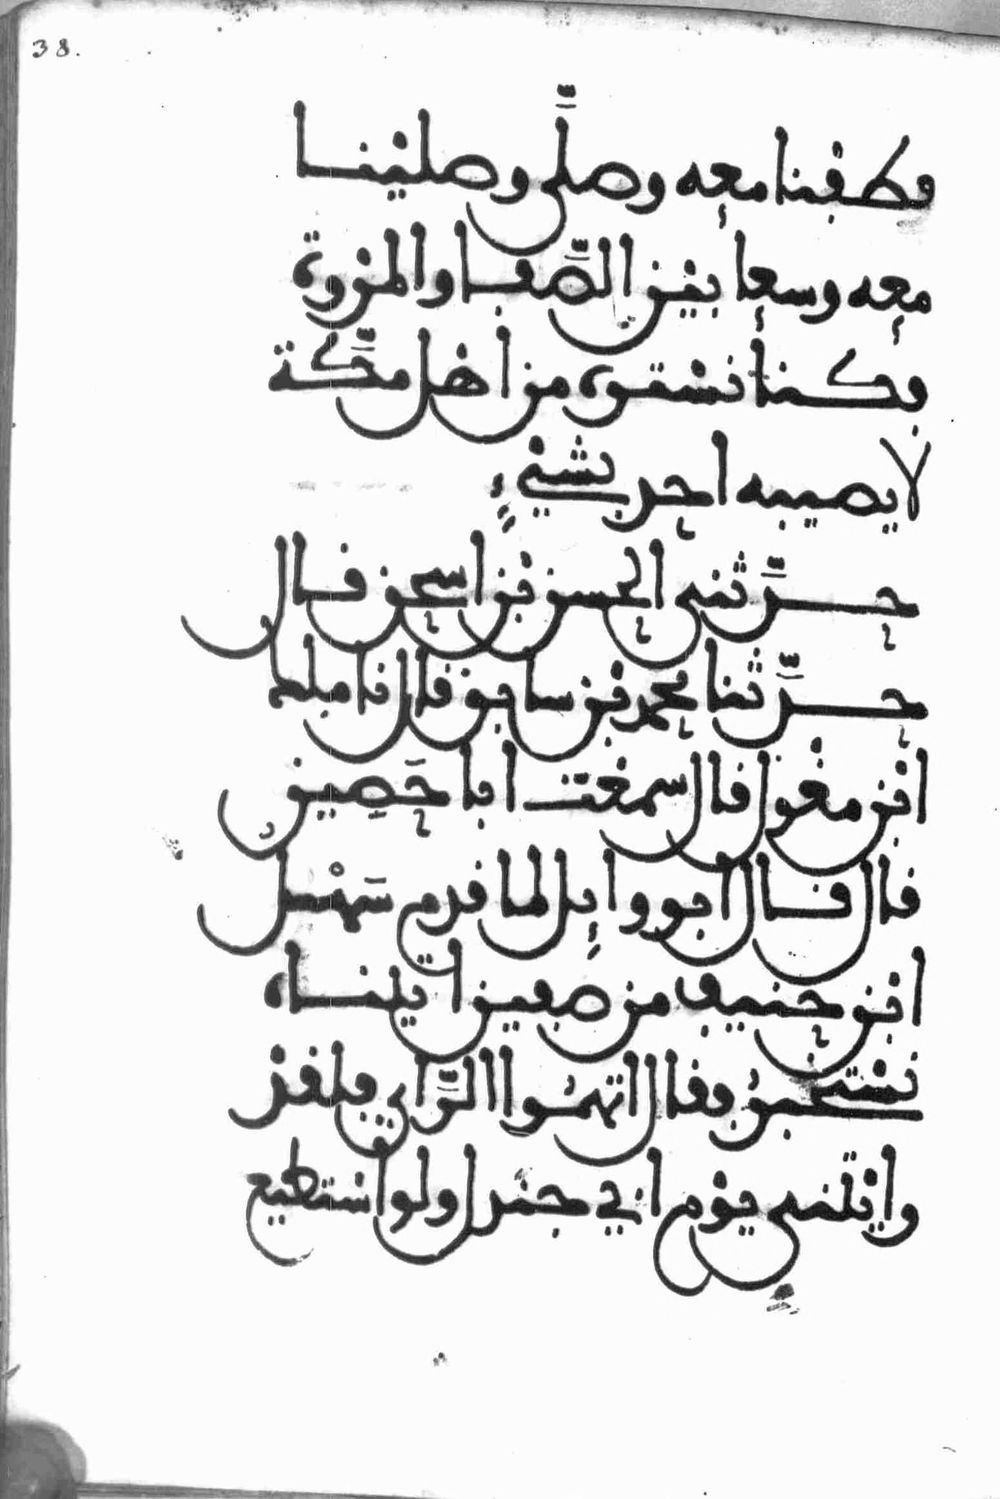 38.
فطفنا معه وصلّى وصلينا
معه وسعا بين الصّفا والمروة
فكنا نستره من اهل مكّة
لا يصيبه احد بشيء
حدّثني الحسن بن اسحق قال
حدّثنا محمد بن سابق قال نا ملك
ابن مغول قال سمعت ابا حَصِين
قال قال ابو وايل لما قدم سَهْل
ابن حنيف من صفين اتيناه
نستخبره فقال اتهموا الرّاي فلقد
رايتني يوم ابي جندل ولو استطيع